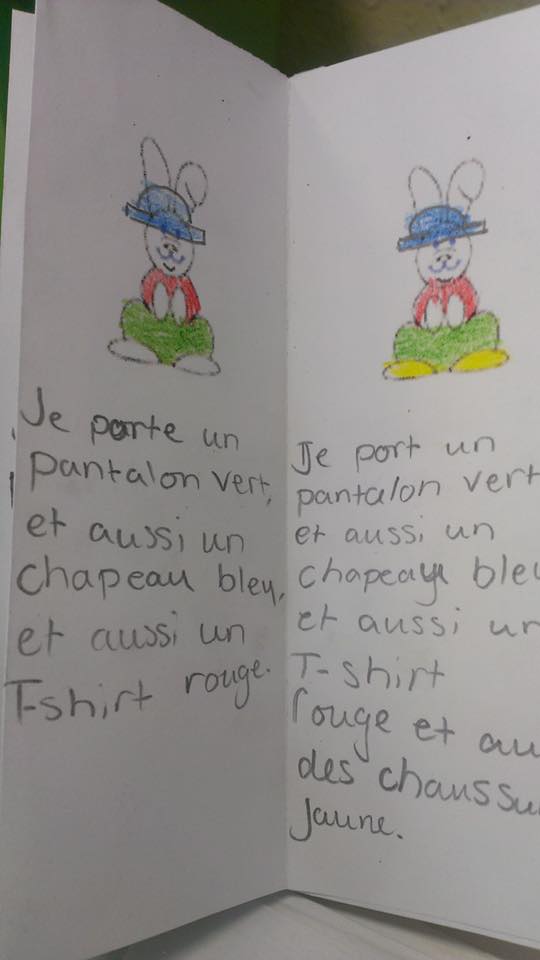 Je porte un
pantalon vert,
et aussi un
chapeau bleu,
et aussi un
T-shirt rouge.
Je port un
pantalon vert
et aussi un
chapeau bleu
et aussi un
T-shirt
rouge et au
des chaussu
jaune.